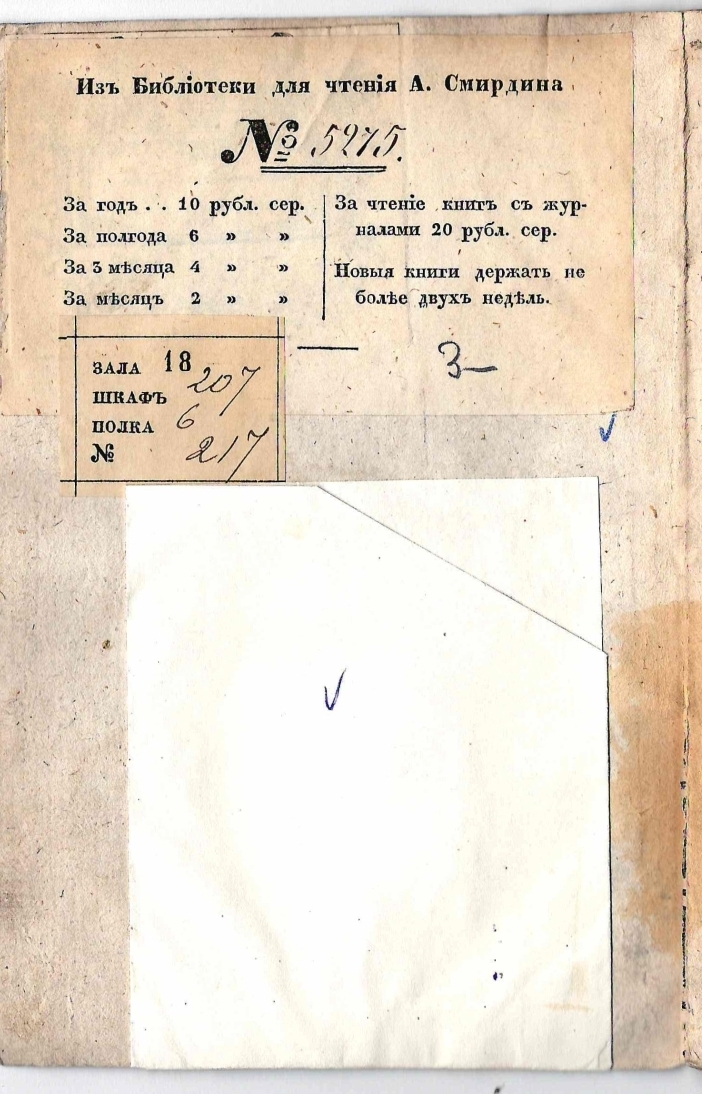 Изъ Библіотеки для чтенія А. Смирдина
№ 5275.
За годъ . . 10 рубл. сер.
За полгода 6 » »
За 3 мѣсяца 4 » »
За мѣсяцъ 2 » »
За чтеніе книгъ съ жур-
налами 20 рубл. сер.
Новыя книги держать не
болѣе двухъ недѣль.
3—
ЗАЛА 18
ШКАФЪ 207
ПОЛКА 6
№ 217